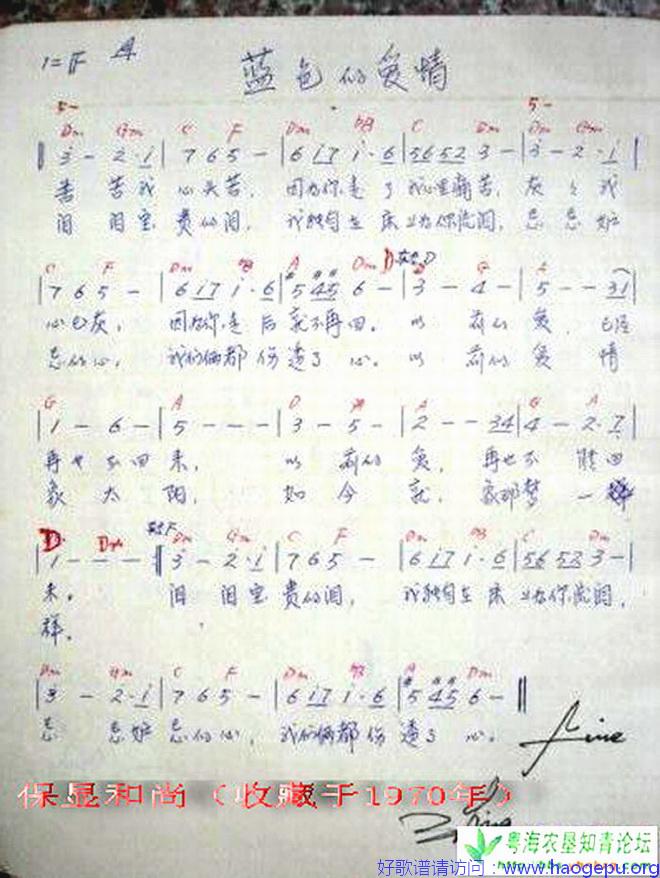 1=F 4/4
蓝色的爱情
5-  5-
Dm Gm C F Dm bB C Dm Dm Gm
‖ 3 - 2·1 | 7 6 5 - | 6 17 1·6 | 56 52 3 - | 3 - 2·1 |
苦 苦我 心头苦, 因为你走了我心里痛苦, 灰 灰我
泪 泪宝 贵的泪, 我独自在 床上为你流泪, 忘 忘妒
C F Dm bB A Dm D D G A
| 7 6 5 - | 6 17 1·6 | #5 #4#5 6 - | 3 - 4 - | 5 - - 31 |
心已灰, 因为你走后就不再回. 以 前的 爱, 已经
忌的心, 我们俩都伤透了心. 以 前的 爱 情
G A D A A G A
| 1 - 6 - | 5 - - - | 3 - 5 - | 2 - - 34 | 4 - 2·7 |
再也不回来, 以 前的 爱, 再也不 能回
象 太 阳, 如 今 就, 象那梦 一
D Dm Dm Gm C F Dm bB C Dm
| 1 - - - ‖ 3 - 2·1 | 7 6 5 - | 6 17 1·6 | 56 53 3 - |
来. 泪 泪宝 贵的泪, 我独自在 床上为你流泪,
样.
Dm Gm C F Dm bB A Dm
| 3 - 2·1 | 7 6 5 - | 6 17 1·6 | #5 #4#5 6 - ‖
忘 忘妒 忌的心, 我们俩都伤 透了 心.
Fine
保显和尚（收藏于1970年）
粤海农垦知青论坛
好歌谱请访问：www.haogepu.org